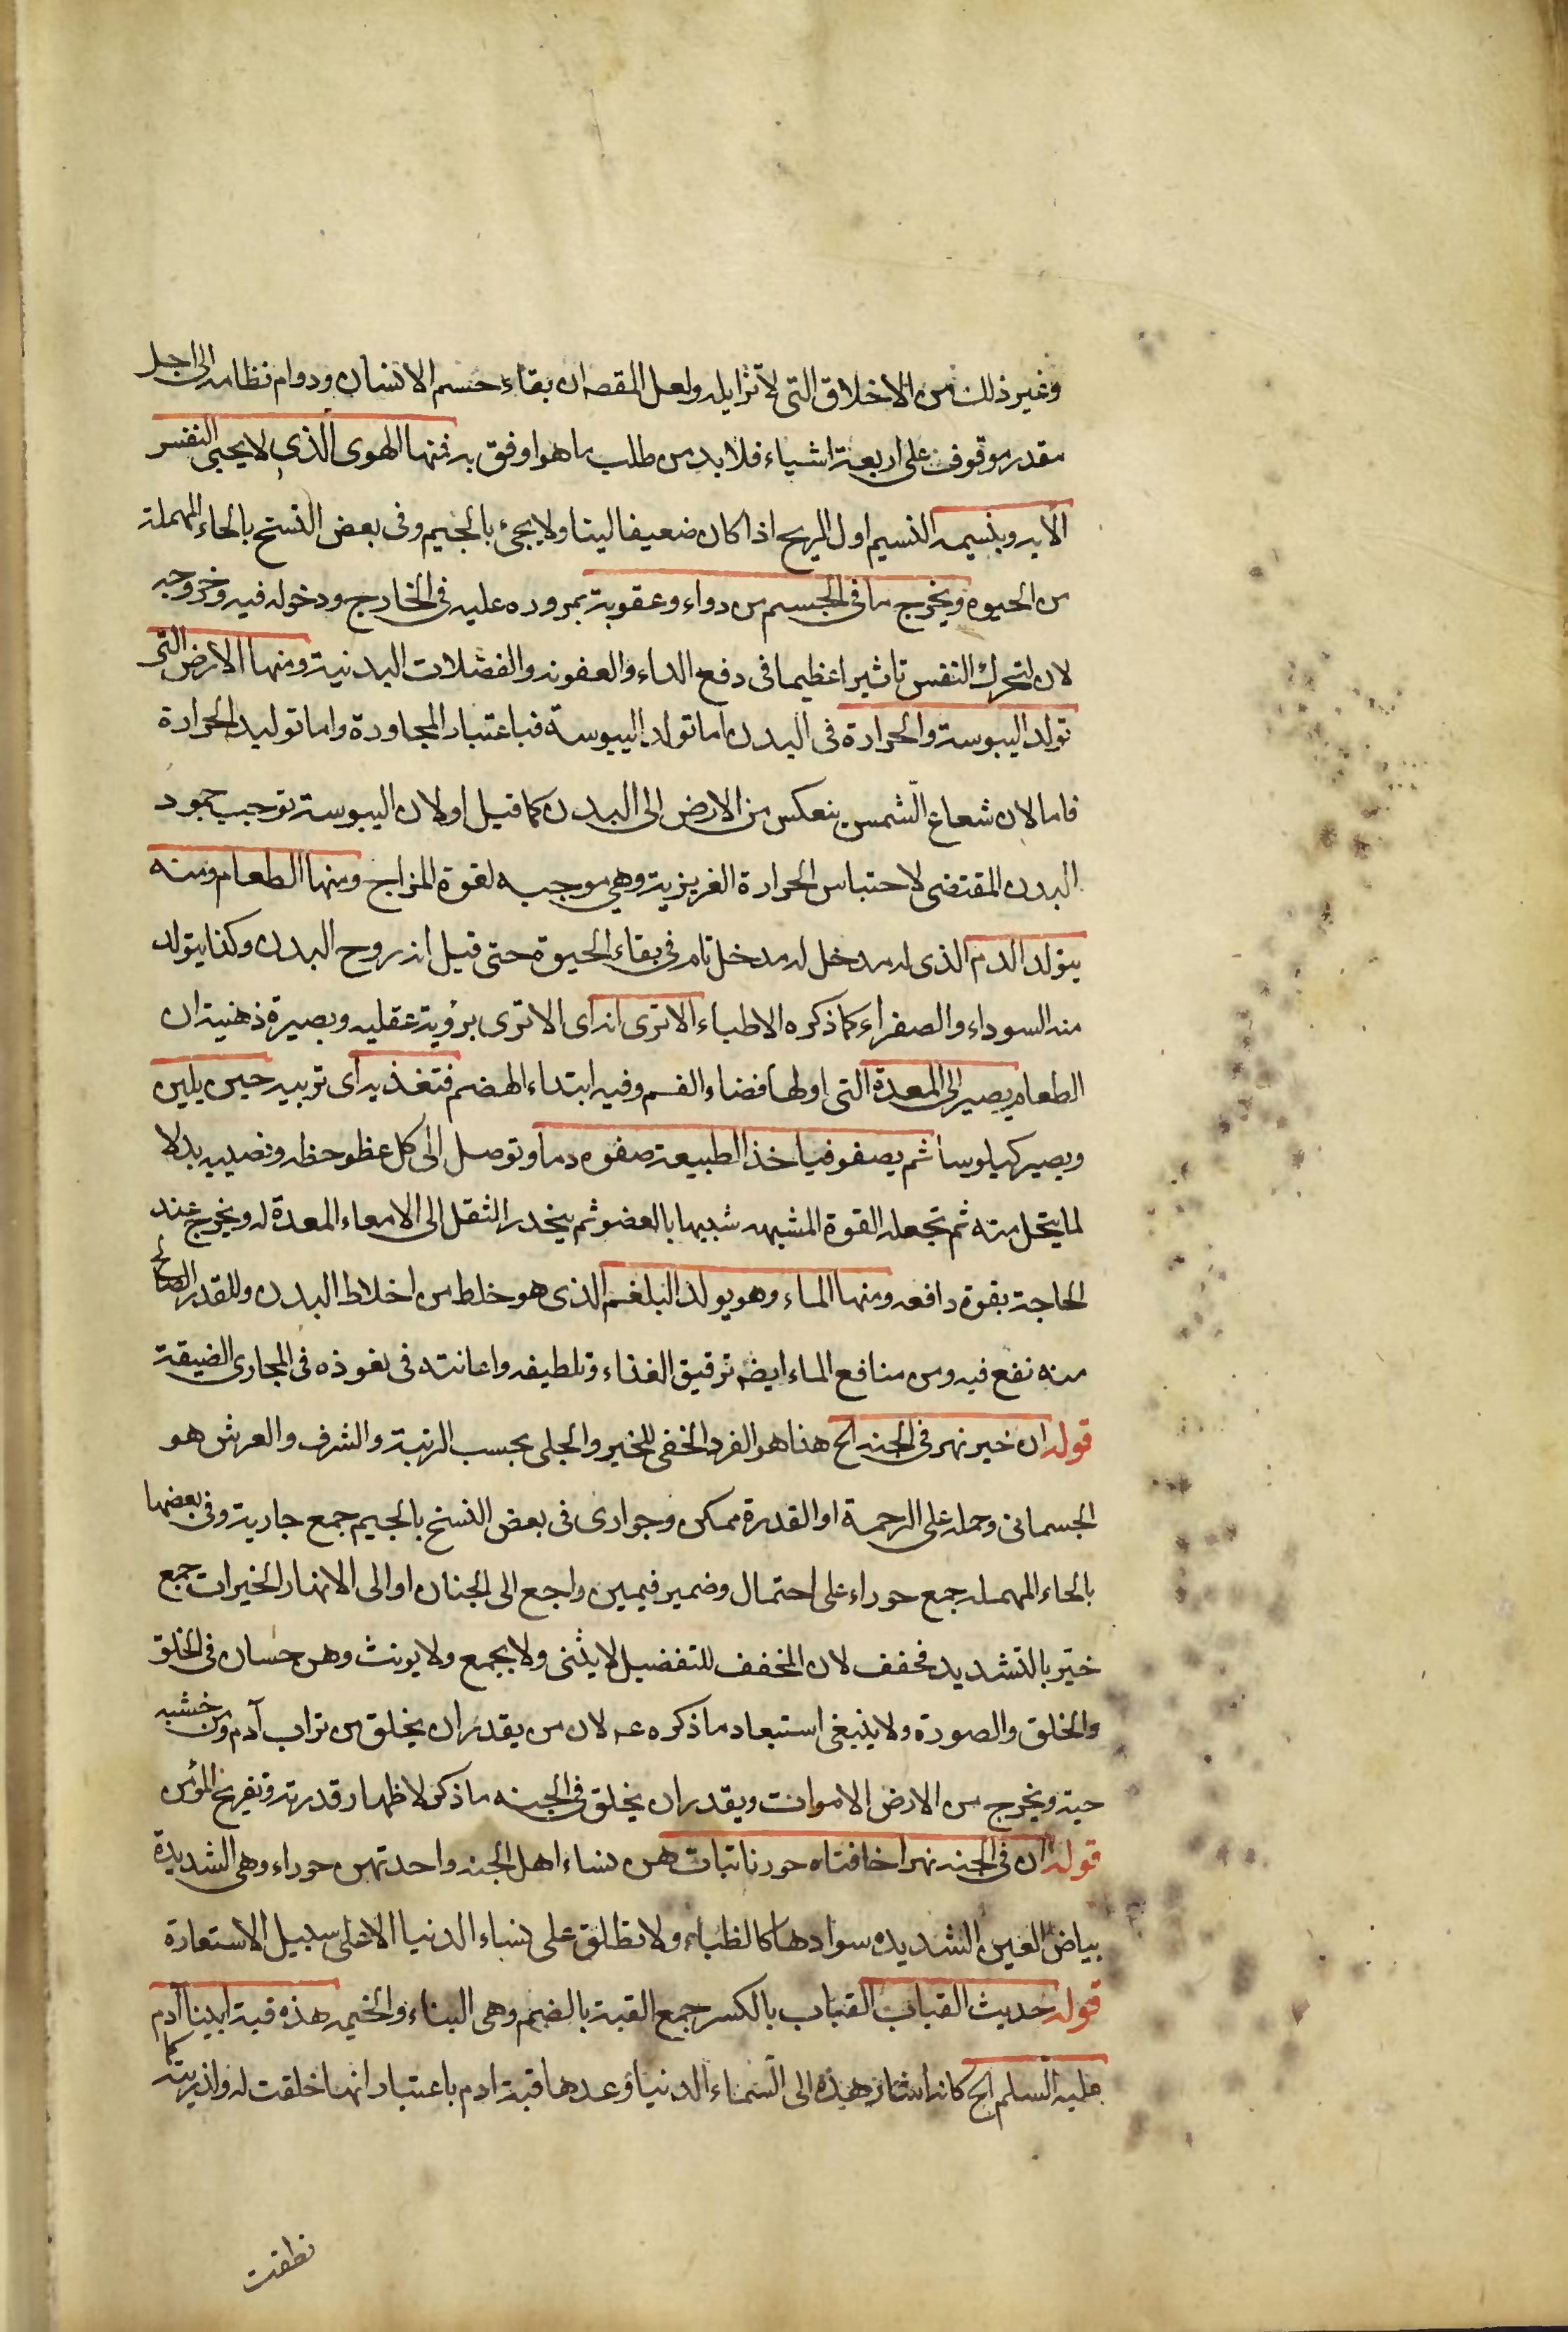 وغير ذلك من الاخلاق التى لا تزايله ولعل المقصه ان بقاء جسم الانسان ودوام نظامه الى اجل
مقدر موقوف على اربعة اشياء فلا بد من طلب ما هو اوفق به فمنها الهوى الذى لا يحيى النفس
الا به وبنسيمه النسيم اول الريح اذا كان ضعيفا لينا ولا يجىء بالجيم وفى بعض النسخ بالحاء المهملة
من الحيوة ويخرج ما فى الجسم من دواء وعقوبة بمروره عليه فى الخارج ودخوله فيه وخروجه
لان لتحرك النفس تاثيرا عظيما فى دفع الداء والعفونه والفضلات البدنية ومنها الارض التى
تولد اليبوسة والحرارة فى البدن اما تولد اليبوسة فباعتبار المجاورة واما توليد الحرارة
فاما لان شعاع الشمس ينعكس من الارض الى البدن كما قيل او لان اليبوسة توجب جمود
البدن المقتضى لاحتباس الحرارة الغريزية وهى موجبه لقوة المزاج ومنها الطعام ومنه
يتولد الدم الذى له مدخل له مدخل تام فى بقاء الحيوة حتى قيل انه روح البدن وكذا يتولد
منه السوداء والصفراء كما ذكره الاطباء الا ترى انه اى الا ترى برؤية عقليه وبصيرة ذهنية ان
الطعام يصير الى المعدة التى اولها فضاء الفم وفيه ابتداء الهضم فتغذيه اى تربيه حين يلين
ويصير كيلوسا ثم يصفو فياخذ الطبيعة صفوه دما وتوصل الى كل عظو حظه ونصيبه بدلا
لما يتحل منه ثم تجعله القوة المشبهه شبيها بالعضو ثم ينحدر الثقل الى الامعاء المعدة له ويخرج عند
الحاجة بقوة دافعه ومنها الماء وهو يولد البلغم الذى هو خلط من اخلاط البدن وللقدر الصالح
منه نفع فيه ومن منافع الماء ايضه ترقيق الغذاء وتلطيفه واعانته فى نفوذه فى المجارى الضيقة
قوله ان خير نهر فى الجنه الخ هذا هو الفرد الخفى للخير والجلى بحسب الرتبة والشرف والعرش هو
الجسمانى وحمله على الرحمة او القدرة ممكن وجوارى فى بعض النسخ بالجيم جمع جارية وفى بعضها
بالحاء المهمله جمع حوراء على احتمال وضمير فيهن راجع الى الجنان او الى الانهار الخيرات جمع
خيّر بالتشديد فخفف لان المخفف للتفضيل لا يثنى ولا يجمع ولا يونث وهن حسان فى الخلق
والخلق والصورة ولا ينبغى استبعاد ما ذكره عه لان من يقدر ان يخلق من تراب آدم ومن خشبه
حية ويخرج من الارض الاموات ويقدر ان يخلق فى الجنه ما ذكر لاظهار قدرته وتفريح المؤمن
قوله ان فى الجنه نهرا حافتاه حور نابتات هن نساء اهل الجنه واحدتهن حوراء وهى الشديدة
بياض العين الشديده سوادها كالظباء ولا تطلق على نساء الدنيا الا على سبيل الاستعارة
قوله حديث القباب القباب بالكسر جمع القبة بالضم وهى البناء والخيمه هذه قبة ابينا آدم
عليه السلم الخ كانه اشار بهذه الى السماء الدنيا وعدها قبة ادم باعتبار انها خلقت له ولذريته كما
نطقت